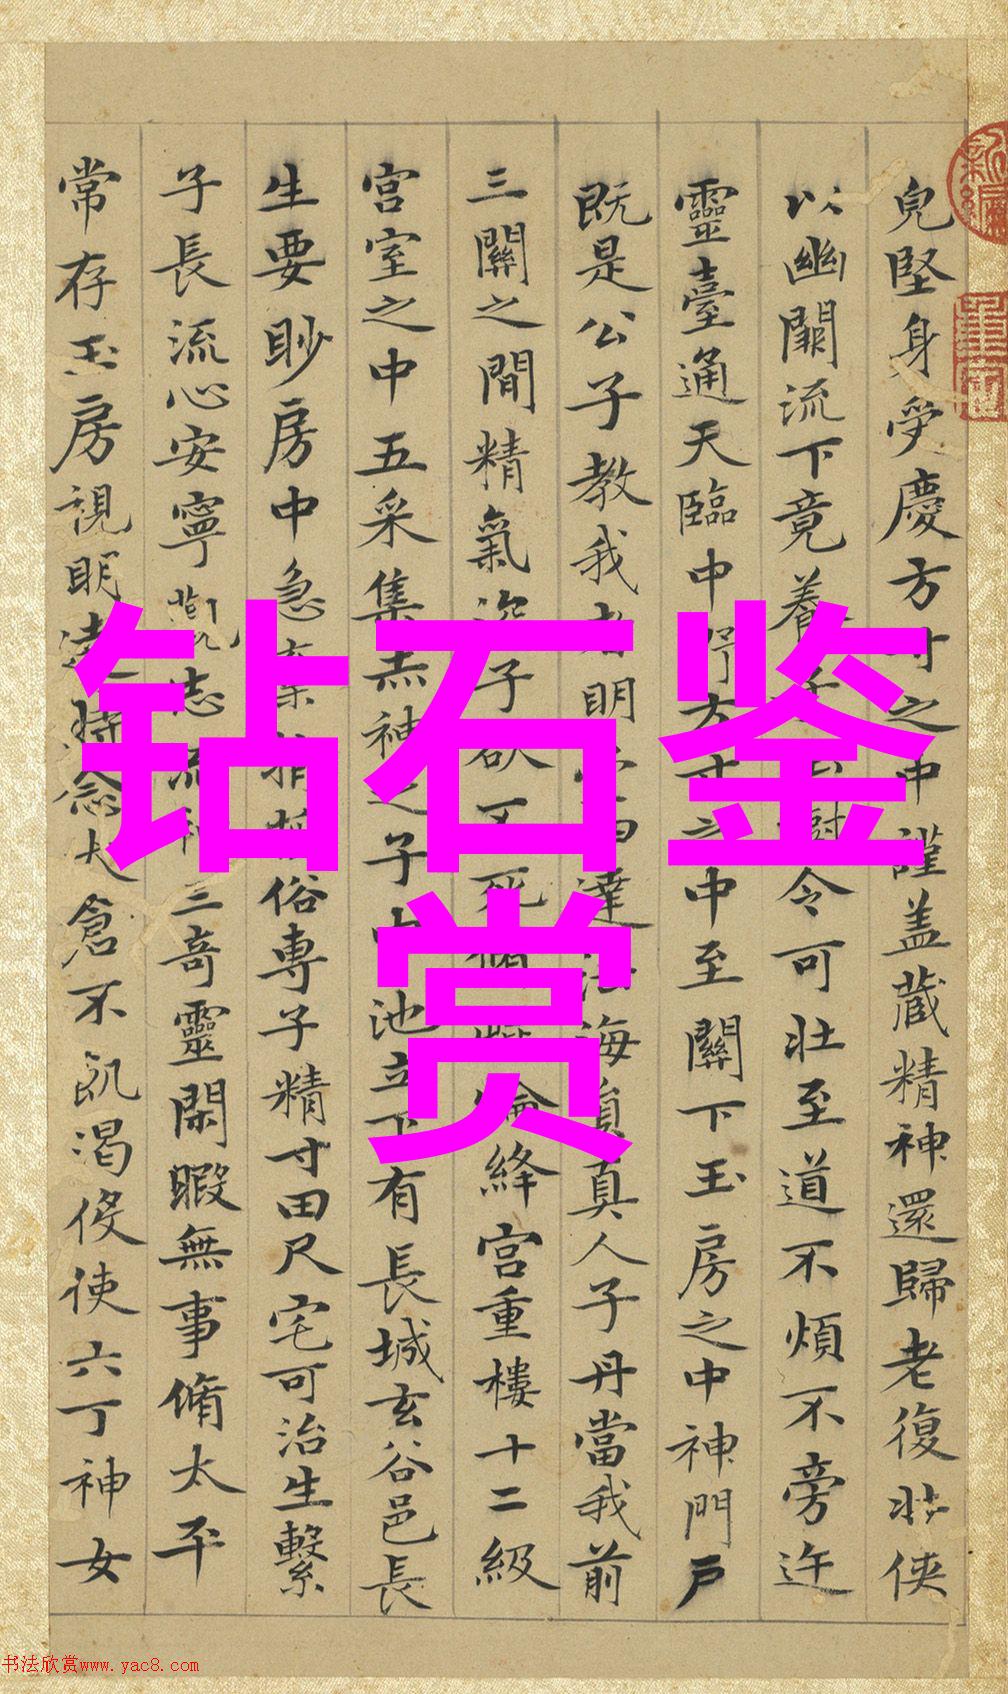 皃堅身受慶方寸之中謹盖藏精神還歸老復壯俠
以幽闕流下竟養令可壯至道不煩不旁迕
靈臺通天臨中野方寸之中至關下玉房之中神門戶
既是公子教我者明達海真人子丹當我前
三關之間精氣深子欲不死絳宮重樓十二級
宮室之中五采集赤神之子中池立下有長城玄谷邑長
生要眇房中急棄捐俗專子精寸田尺宅可治生繫
子長流心安寧觀志流三奇靈閑暇無事脩太平
常存玉房視明達時念大倉不飢渴伇使六丁神女
钻石鉴
赏
书法欣赏www.yac8.com